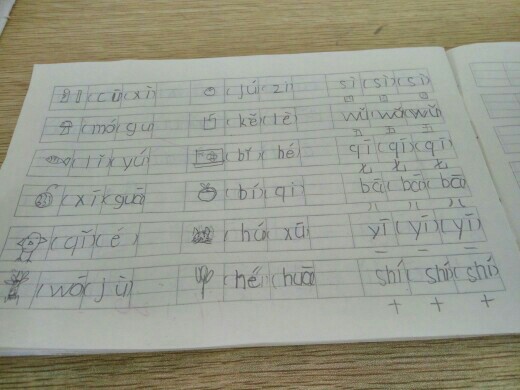 (cū(xì) (jú(zi) sì(sì(sì)
四 四 四
(mó(gu (kě(lè) wǔ(wǔ(wǔ)
五 五 五
(lǐ(yú) (bǐ(hé) qī(qī(qī)
七 七 七
(xī(guā) (bí(qi) bā(bā(bā)
八 八 八
(qǐ(é) (hú(xū) yī(yī(yī)
一 一 一
(wō(jù) (hé(huā) shí(shí(shí)
十 十 十